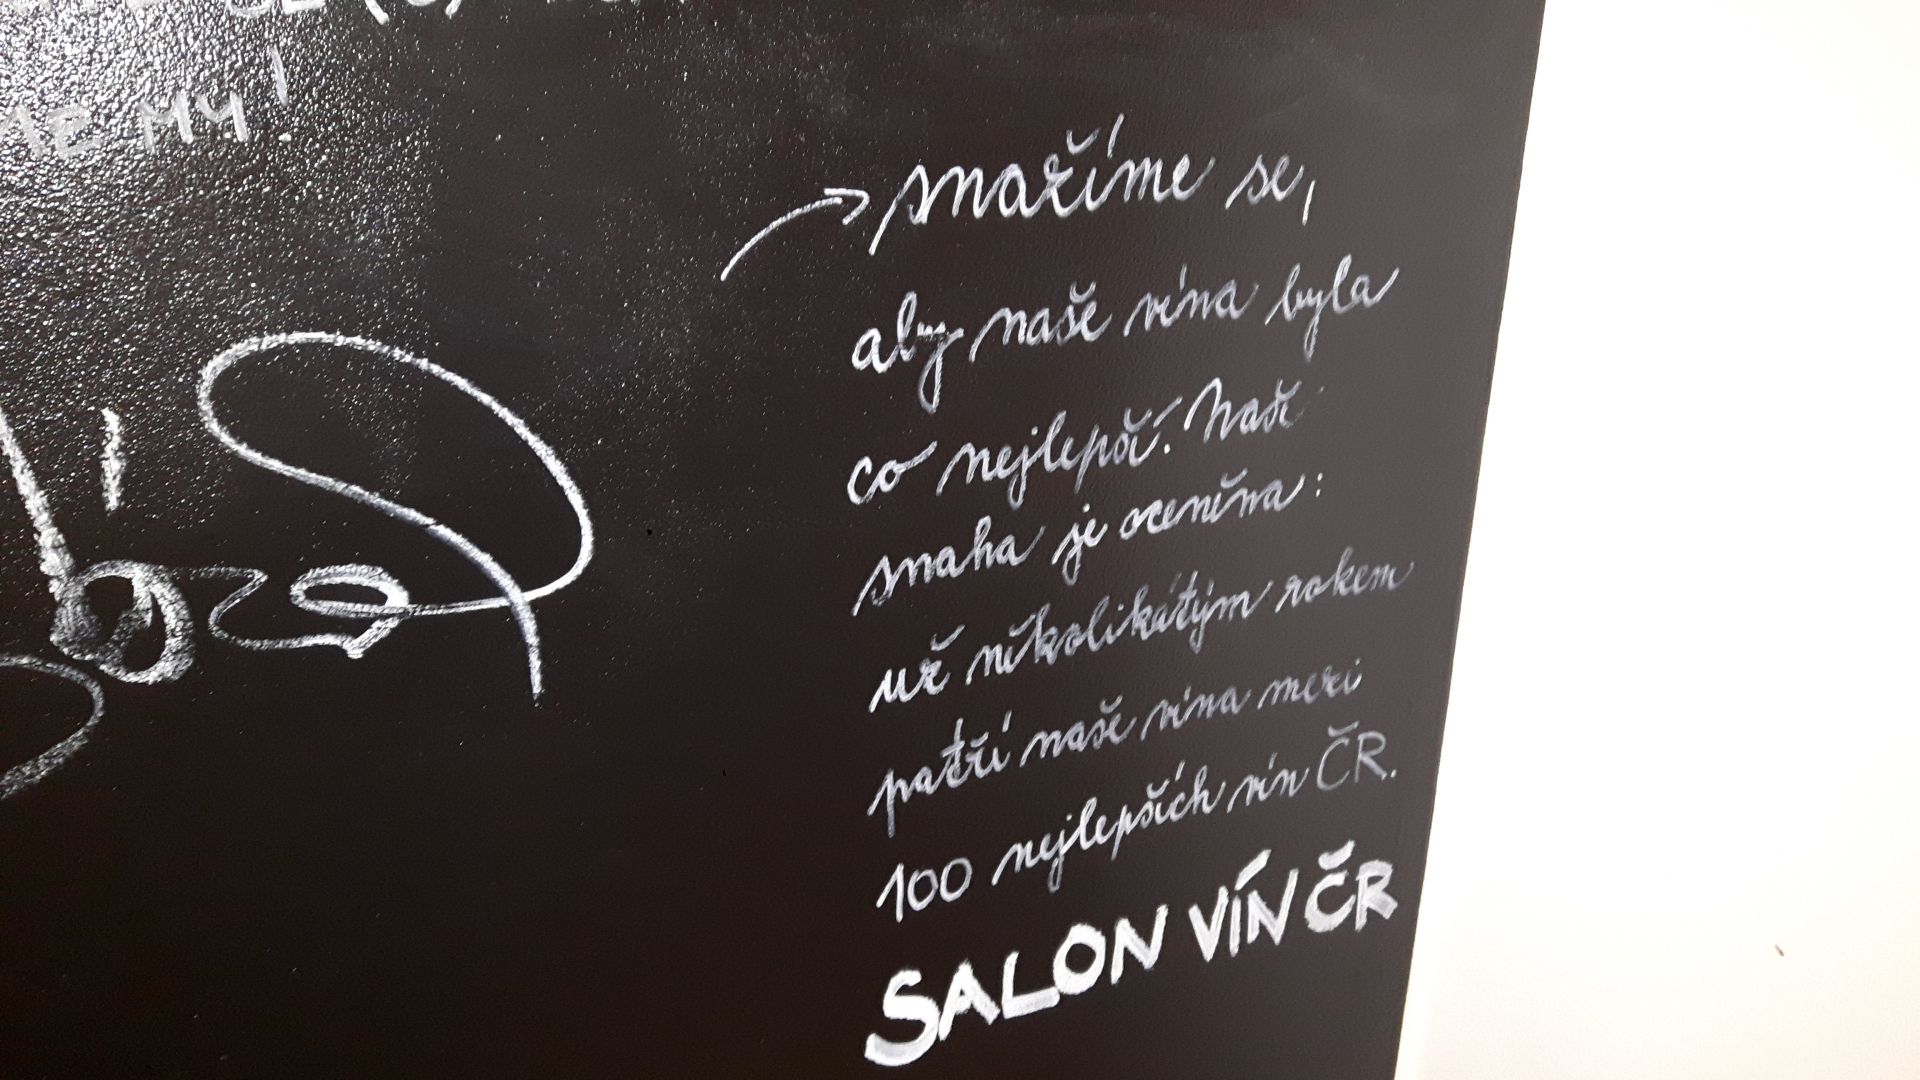 ME MY!
snažíme se,
aby naše vína byla
co nejlepší. Naše
snaha je oceněna:
už několikátým rokem
patří naše vína mezi
100 nejlepších vín ČR.
SALON VÍN ČR